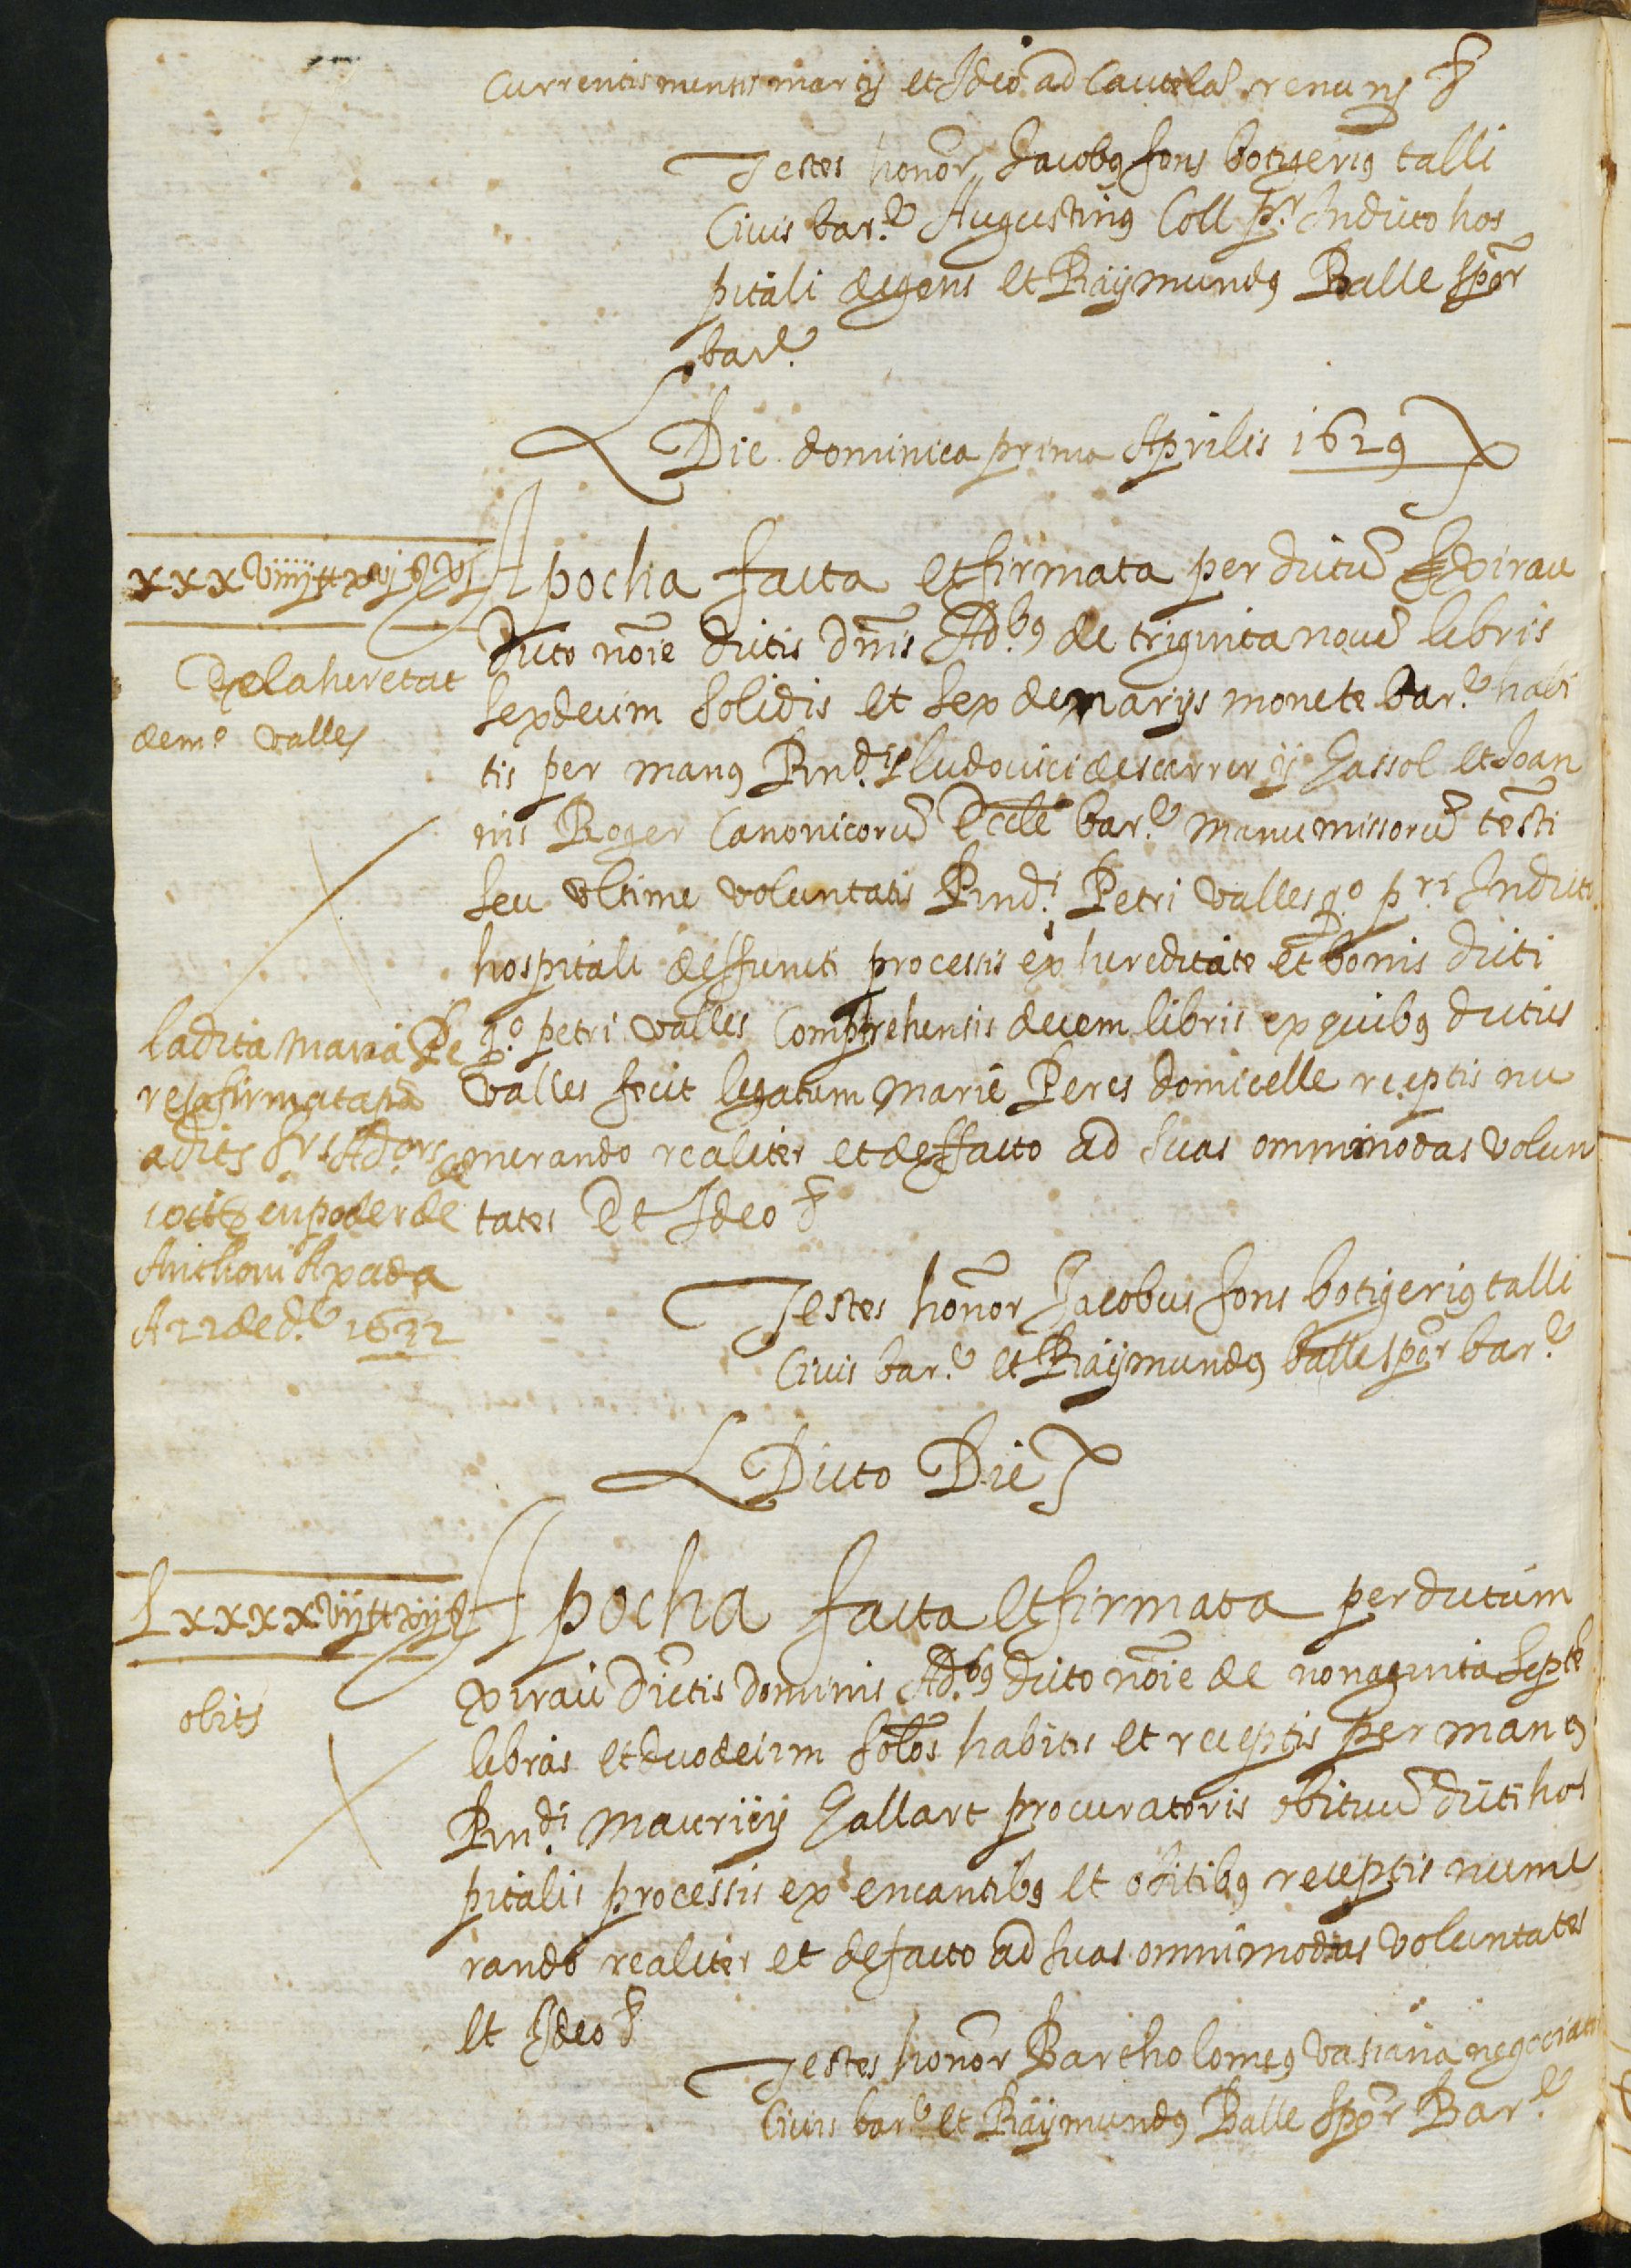 Currentis mensis martij et Ideo ad Cautela renunt &
Testes honor Jacobus fons botigerius talli
Civis bar.e Augustinus Coll pr. In dicto hos
pitali degens et Raijmundus Balle spor
bar.e
Die dominica prima Aprilis 1629
xxxviiij ll xvj s vj
Apocha facta et firmata per dictum Xirau
dicto noie dictis dnis Ad.bus de triginta novem libris
De la heretat
sexdecim solidis et sex denarijs monete bar.e habi
de m.o valles
tis per manus Rnd. ludovici descarrer ij Gassol et Joan
nis Roger Canonicorum Eccle bar.e manumissorum testi
seu ultime voluntatis Rndi Petri valles q.o pri In dicto
hospitali deffuncti processis ex hereditate et bonis dicti
q.o petri valles Comprehensis decem libris ex quibus dictus
la dita Maria Pe
valles fecit legatum Marie Peres domicelle receptis nu
res a firmat apoca
merando realiter et deffacto ad suas omnimodas volun
a dits Srs Ad.ors de
tates Et Ideo &
10 ll en poder de
Anthoni Axada
A 22 de d.e 1632
Testes honor Jacobus fons botigerius talli
Civis bar.e et Raijmundus balle spor bar.e
Dicto Die
Lxxxxvij ll xij s
Apocha facta et firmata per dictum
xirau dictis dominis Ad.bus dicto noie de nonaginta septe
obits
libris et duodecim solos habitis et receptis per manus
Rndi Mauricij Gallart procuratoris obituum dicti hos
pitalis processis ex encantibus et obitibus receptis nume
rando realiter et defacto ad suas omnimodas voluntates
et Ideo &
Testes honor Bartholomeus vasiana negociator
Civis bar.e et Raijmundus Balle spor Bar.e